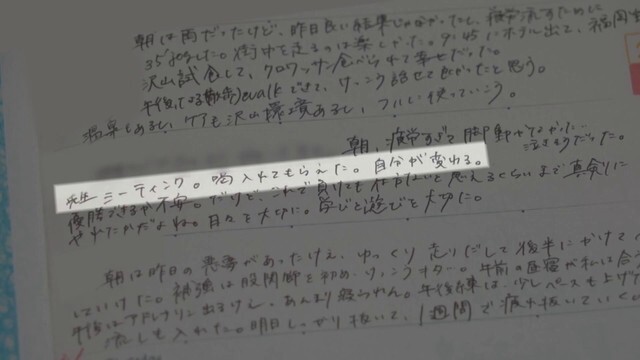 朝は雨だったけど、昨日良い結果じゃなかったし、疲労流すために
35'jogした。街中を走るのは楽しかった。9:45にホテル出て、福岡
沢山試食して、クロワッサン食べられて幸せだった。
walkできて、けっこう話せて良かったと思う。
温泉もあるし、ケアも沢山環境あるし、フルに使っていこう。
朝、疲労すぎて脚動かなかった
先生ミーティング。喝入れてもらえた。自分が変わる。
優勝できるか不安。だけど、これで負けても仕方ないと思えるくらいまで真剣に
やれたかだよね。日々を大切に。学びと遊びを大切に。
朝は昨日の悪夢があったけど、ゆっくり走りだして後半にかけて
していけた。補強は股関節を初め、けっこうキター。午前の昼寝が私には合う
午後はアドレナリン出るけん、あんまり寝られん。午後は少しペースも上げ
流しも入れた。明日しっかり抜いて、1週間で疲れ抜いていく